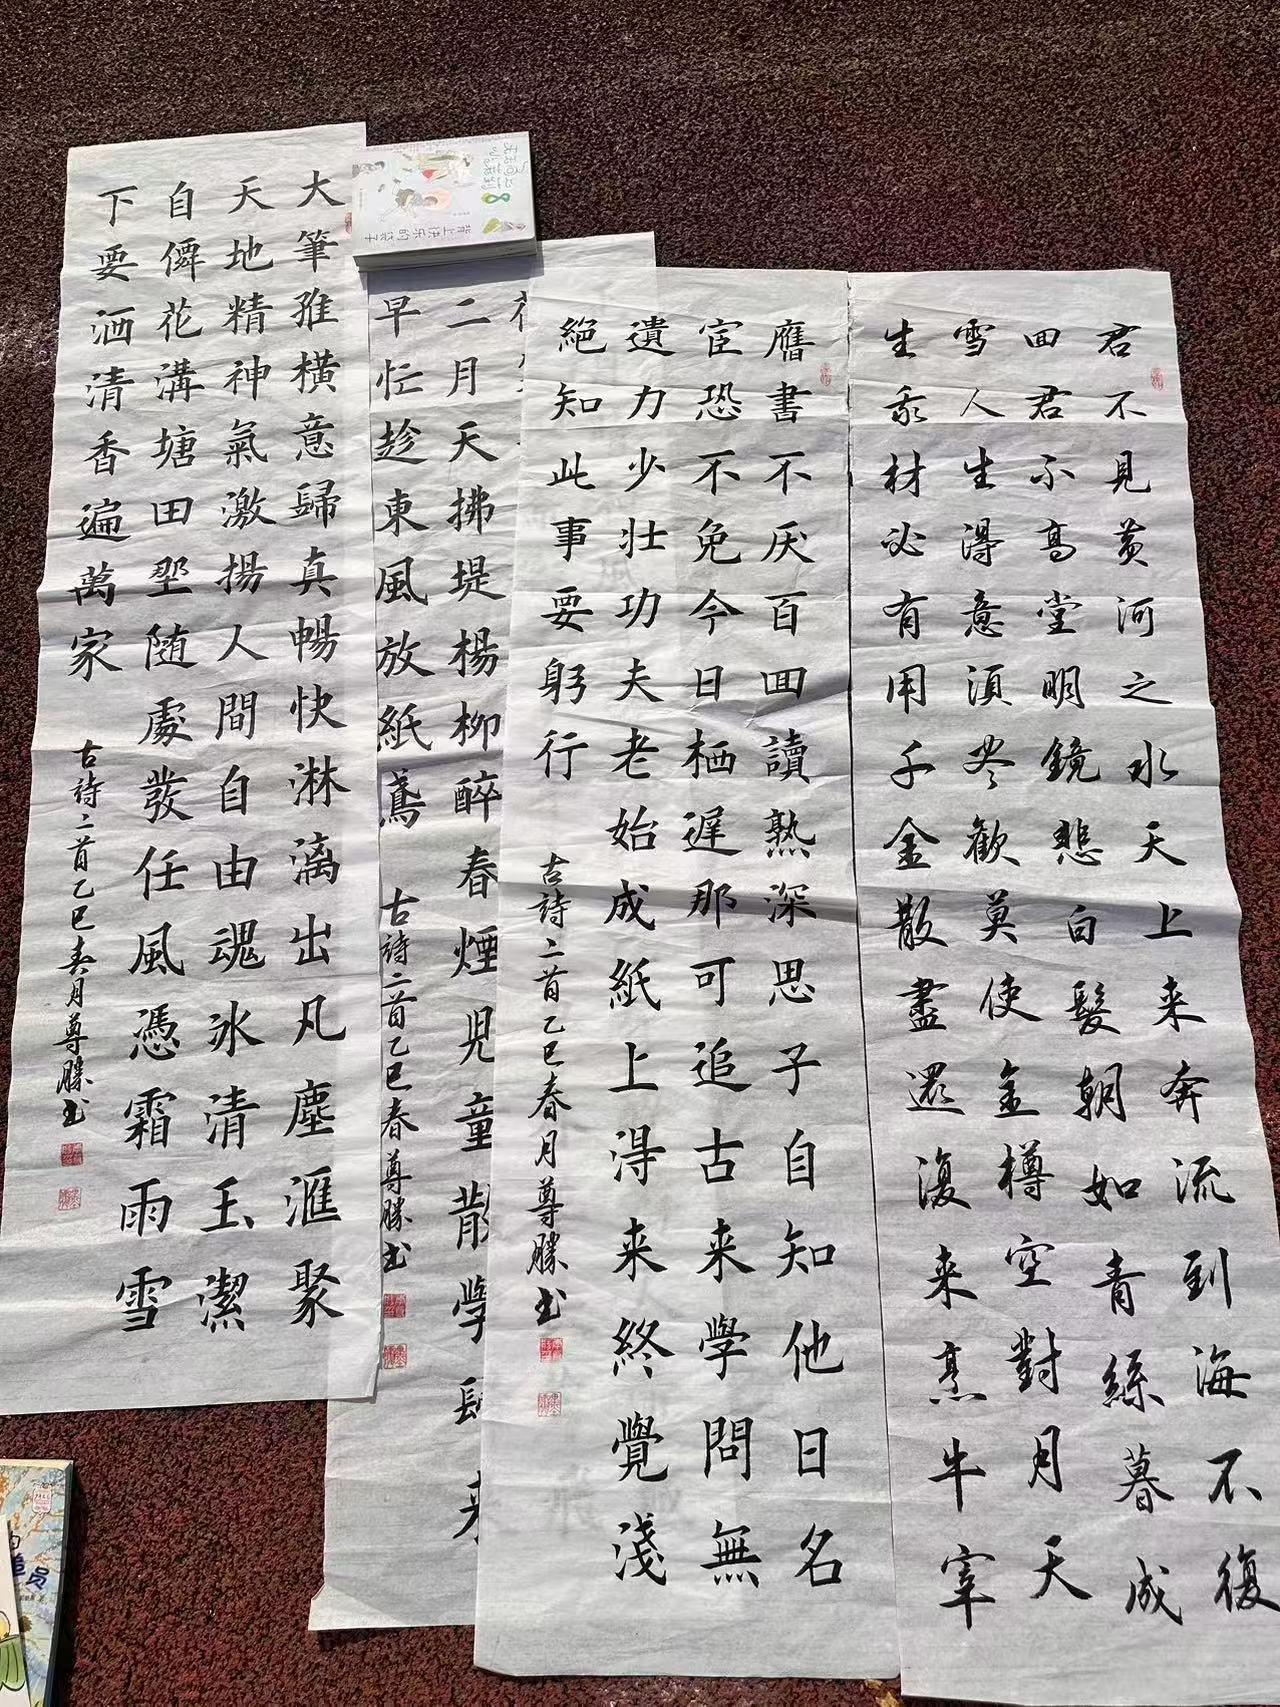 君不見黄河之水天上来奔流到海不復
囬君不高堂明鏡悲白髮朝如青絲暮成
雪人生得意須尽歡莫使金樽空對月天
生我材必有用千金散盡還復来烹牛宰
舊書不厌百囬讀熟深思子自知他日名
宦恐不免今日栖遲那可追古来學問無
遺力少壮功夫老始成紙上得来終覺淺
絕知此事要躬行
古詩二首乙巳春月尊勝书
二月天拂堤楊柳醉春煙児童散學歸来
早忙趁東風放紙鳶
古詩二首乙巳春尊勝书
大筆縱橫意歸真暢快淋漓出凡塵滙聚
天地精神氣激揚人間自由魂冰清玉潔
自僻花溝塘田埜随處發任風憑霜雨雪
下要洒清香遍萬家
古詩二首乙巳春月尊勝书
背上快乐的袋子